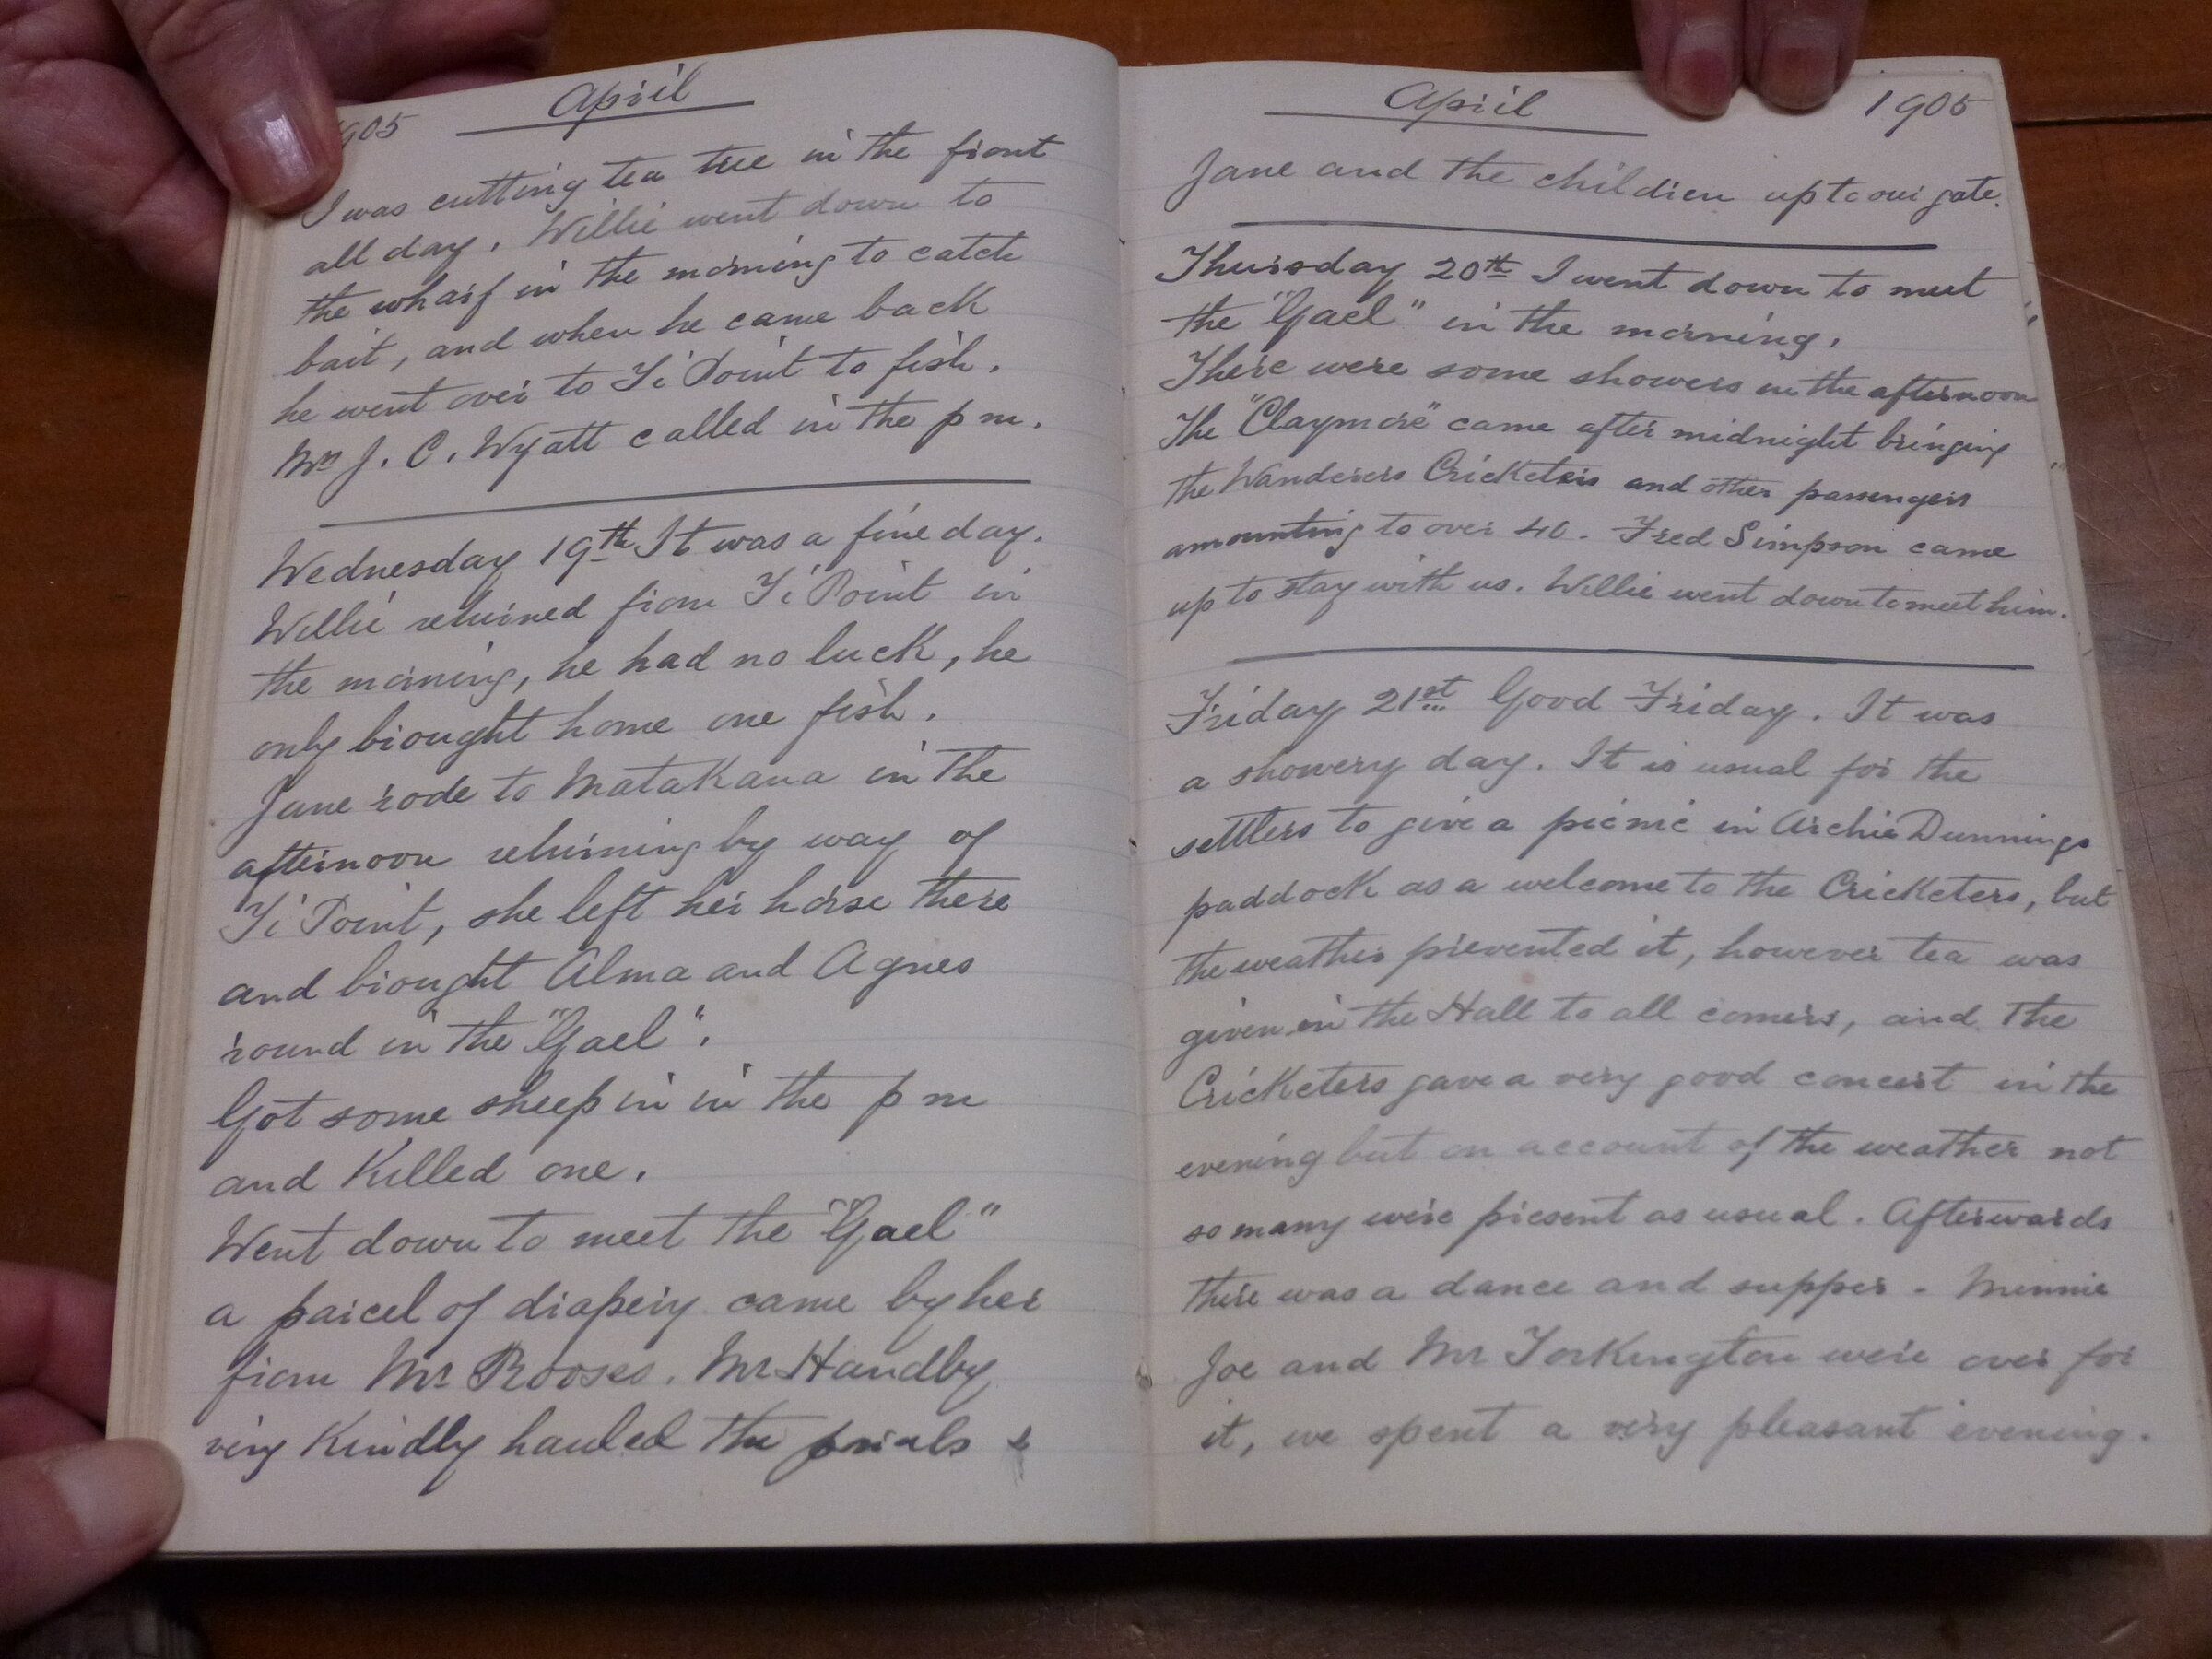 1905 April
I was cutting tea tree in the front
all day. Willie went down to
the wharf in the morning to catch
bait, and when he came back
he went over to Ti Point to fish.
Mr J. C. Wyatt called in the p m.
Wednesday 19th It was a fine day.
Willie returned from Ti Point in
the morning, he had no luck, he
only brought home one fish.
Jane rode to Matakana in the
afternoon returning by way of
Ti Point, she left her horse there
and brought Alma and Agnes
round in the "Gael".
Got some sheep in in the p m
and Killed one.
Went down to meet the "Gael"
a parcel of drapery came by her
from Mr Rooses. Mr Handby
very Kindly hauled the &
April 1905
Jane and the children up to our gate.
Thursday 20th I went down to meet
the "Gael" in the morning.
There were some showers in the afternoon
The "Claymore" came after midnight bringing
the Wanderers Cricketers and other passengers
amounting to over 40. Fred Simpson came
up to stay with us. Willie went down to meet him.
Friday 21st Good Friday. It was
a showery day. It is usual for the
settlers to give a picnic in Archie Dunnings
paddock as a welcome to the Cricketers, but
the weather prevented it, however tea was
given in the Hall to all comers, and the
Cricketers gave a very good concert in the
evening but on account of the weather not
so many were present as usual. Afterwards
there was a dance and supper - Minnie
Joe and Mr Torkington were over for
it, we spent a very pleasant evening.